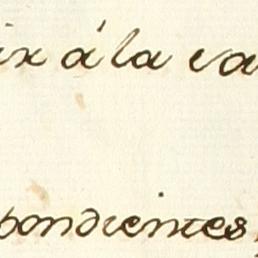 ir á la ca
pondientes,